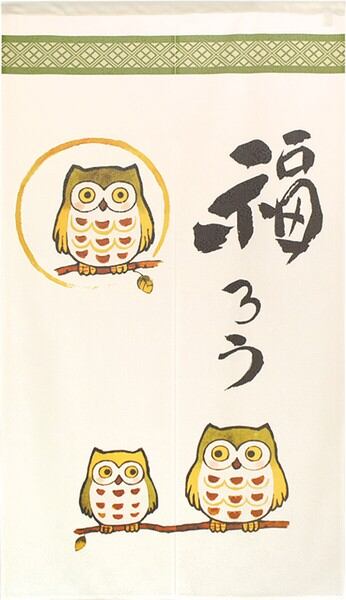 福ろう